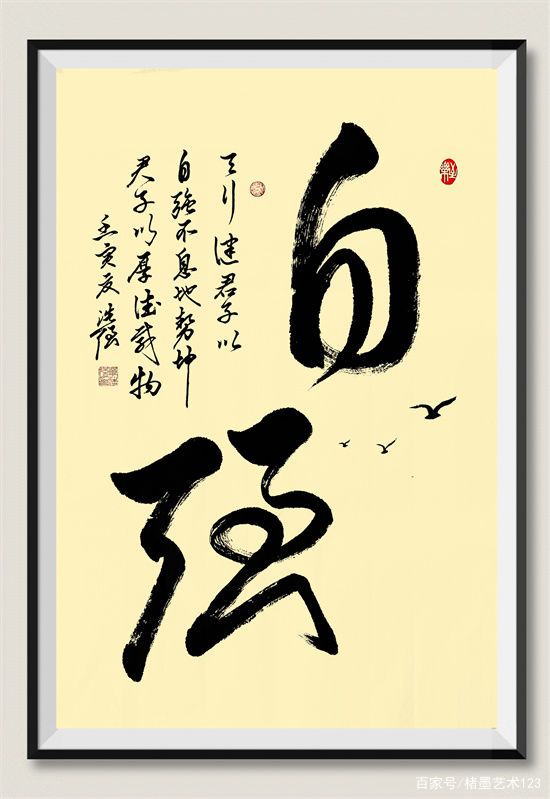 自强
天行健君子以
自强不息地势坤
君子以厚德载物
壬寅夏
百家号/楮墨艺术123